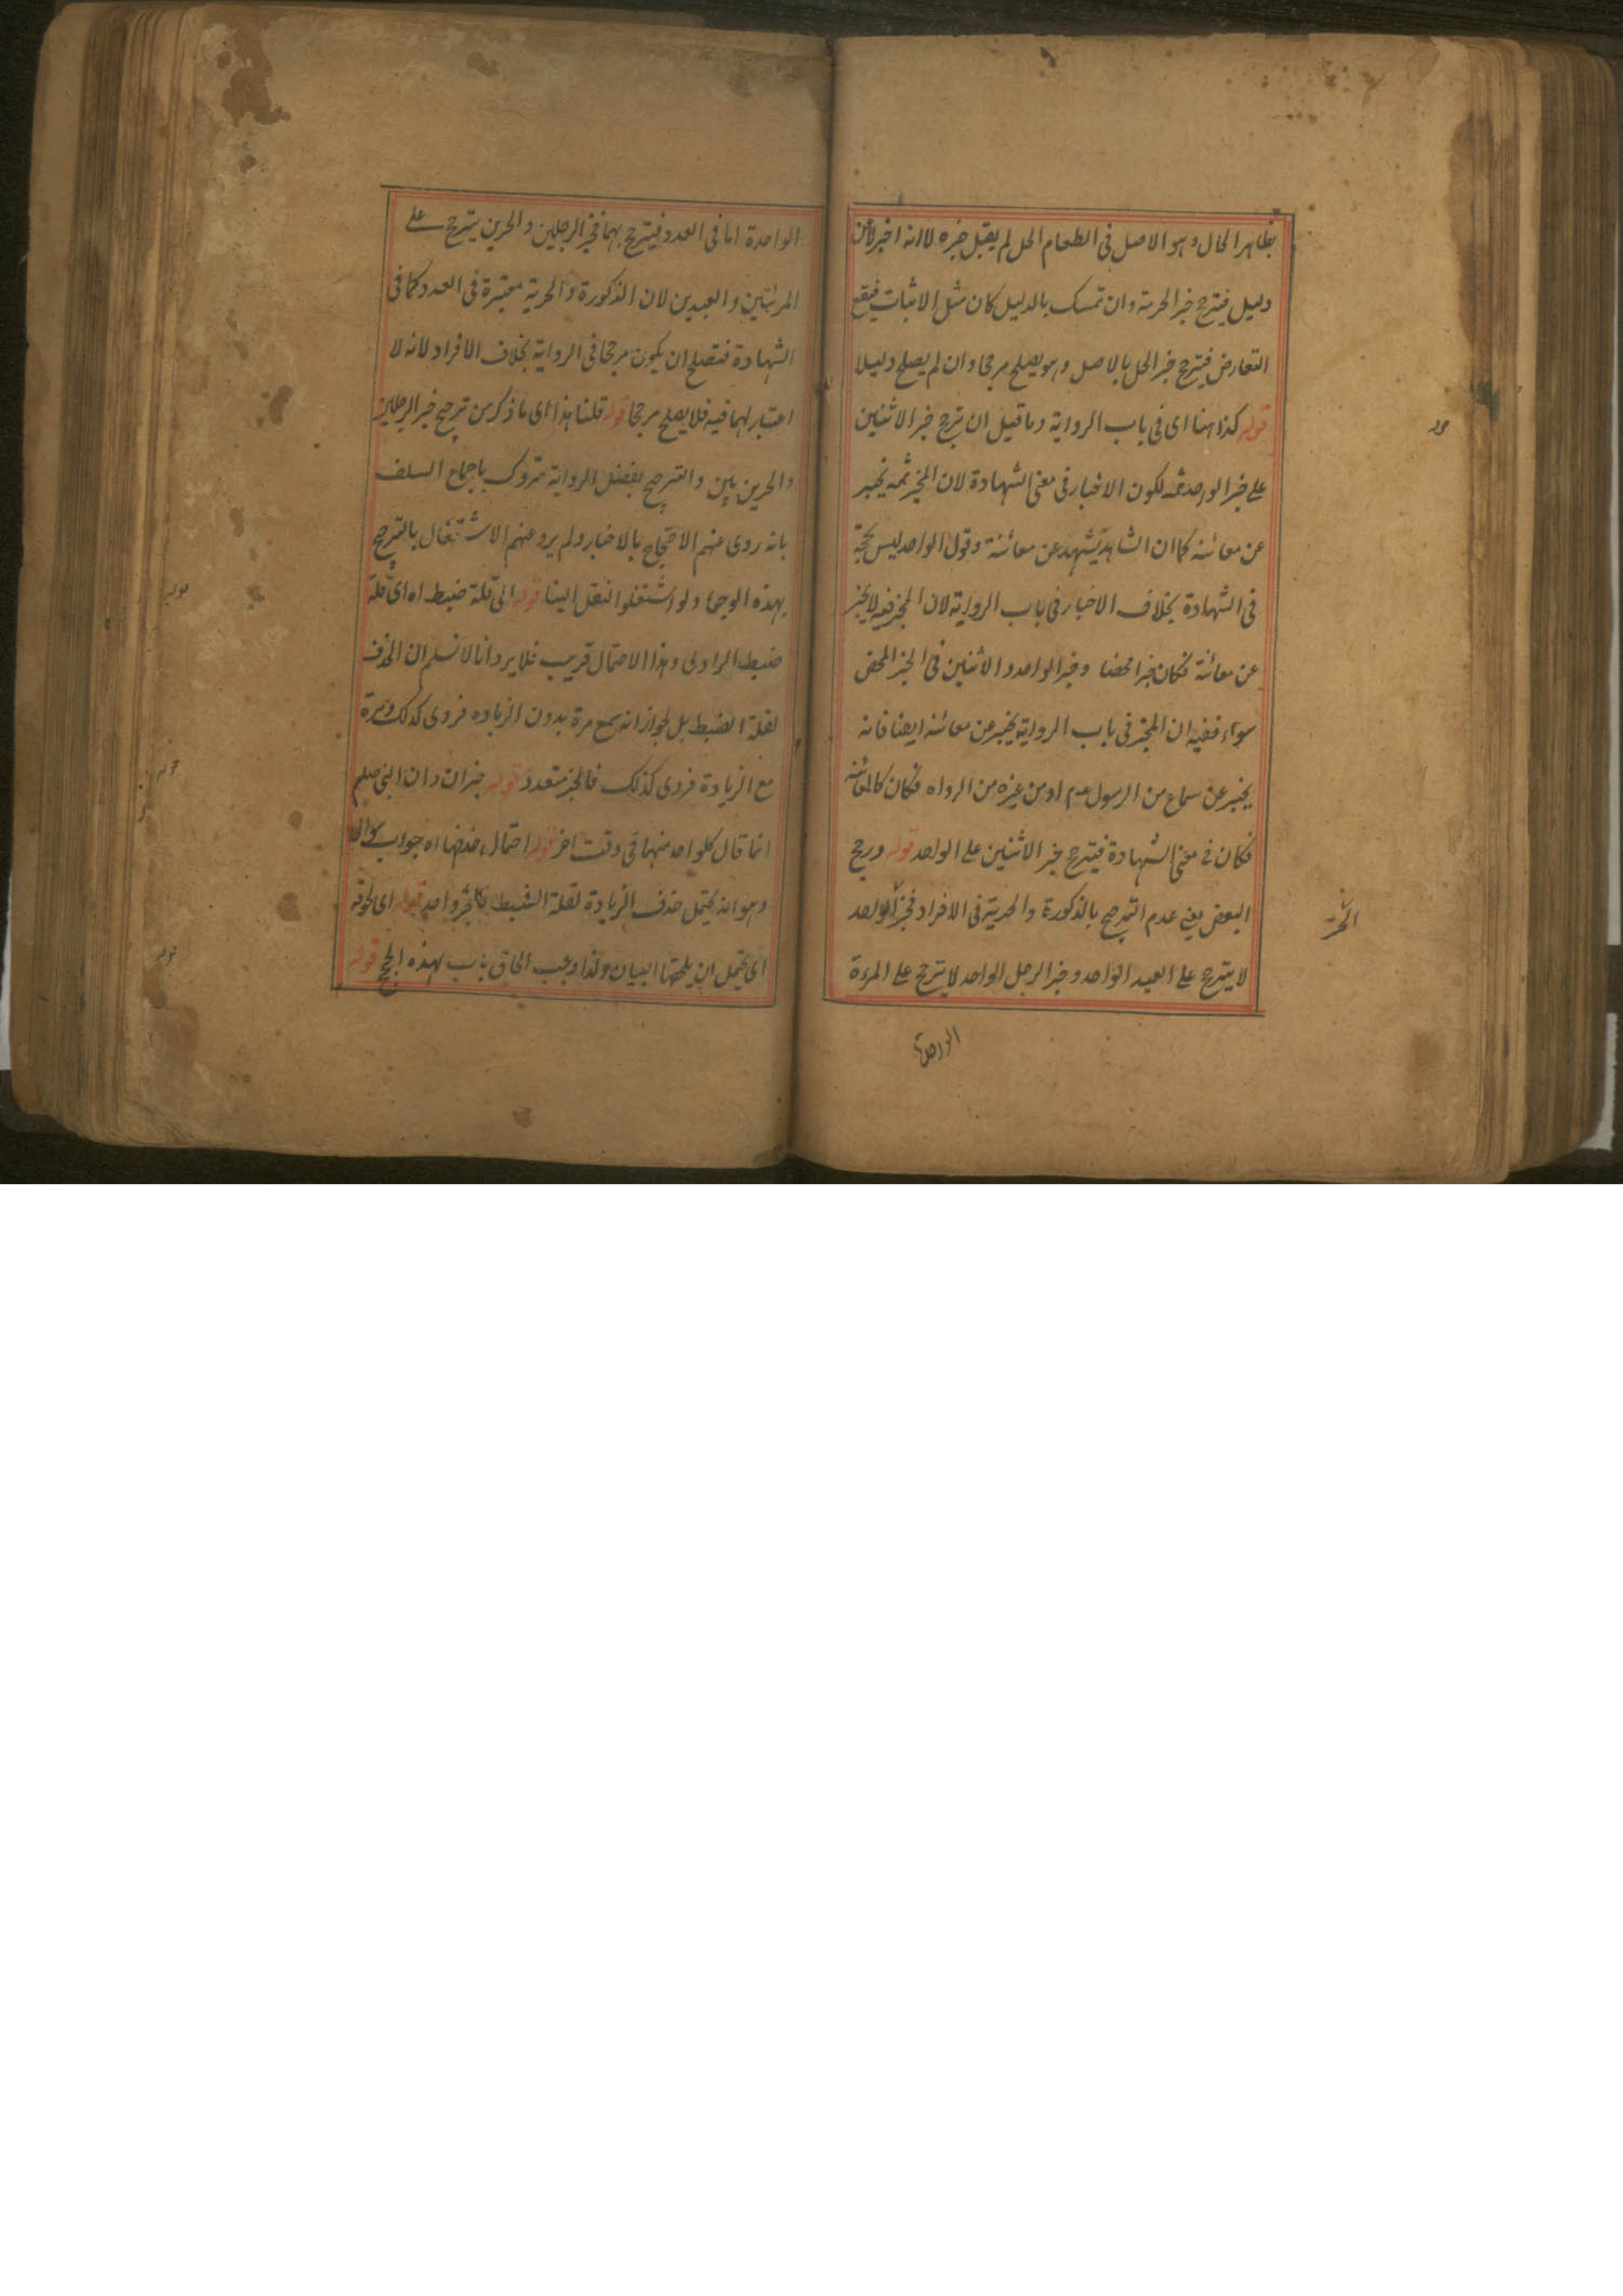 بظاهر الحال وهو الاصل فى الطعام الحل لم يقبل خبره لا انه اخبر لا عن
دليل فيترجح خبر الحرمة وان تمسك بالدليل كان مثل الاثبات فيقع
التعارض فيترجح خبر الحل بالاصل وهو يصلح مرجحا وان لم يصلح دليلا
قوله كذا هنا اى فى باب الرواية وما قيل ان ترجح خبر الاثنين
على خبر الواحد ثمه لكون الاخبار فى معنى الشهادة لان المخبر ثمه يخبر
عن معائنه كما ان الشاهد يشهد عن معائنة وقول الواحد ليس بحجة
فى الشهادة بخلاف الاخبار فى باب الرواية لان المخبر فيه لا يخبر
عن معائنة فكان خبرا محضا وخبر الواحد والاثنين فى الخبر المحض
سواء ففيه ان المخبر فى باب الرواية يخبر عن معائنه ايضا فانه
يخبر عن سماع من الرسول عم او من غيره من الرواه فكان كالمعائنه
فكان فى معنى الشهادة فيترجح خبر الاثنين على الواحد قوله ورجح
البعض يعنى عدم الترجيح بالذكورة والحرية فى الافراد فخبر الواحد
الحر
لا يترجح على العبد الواحد وخبر الرجل الواحد لا يترجح على المرءة
الواحدة
الواحدة اما فى العدد فيترجح بهما فخبر الرجلين والحرين يترجح على
المرئتين والعبدين لان الذكورة والحرية معتبرة فى العدد كما فى
الشهادة فتصلح ان يكون مرجحا فى الرواية بخلاف الافراد لانه لا
اعتبار لهما فيه فلا يصلح مرجحا قوله قلنا هذا اى ما ذكر من ترجيح خبر الرجلين
والحرين بين والترجيح بفضل الرواية متروك باجماع السلف
بانه روى عنهم الاحتجاج بالاخبار ولم يرو عنهم الاشتغال بالترجيح
بهذه الوجها ولو اشتغلوا لنقل الينا قوله الى قلة ضبط اه اى قلة
ضبط الراوى وهذا الاحتمال قريب فلا يرد انا لا نسلم ان الحذف
لقلة الضبط بل لجواز انه سمع مرة بدون الزياده فروى كذلك ومرة
مع الزيادة فروى كذلك فالخبر متعدد قوله خبران وان النبى صلعم
انما قال كلواحد منهما فى وقت اخر قوله احتمال حذفها اه جواب سوال
وهو انه يحتمل حذف الزيادة لقلة الضبط فالخبر واحد قوله اى لحوقه
اى يحتمل ان يلحقها البيان ولذا وجب الحاق باب بهذه الحجج قوله
قوله
قوله
قوله